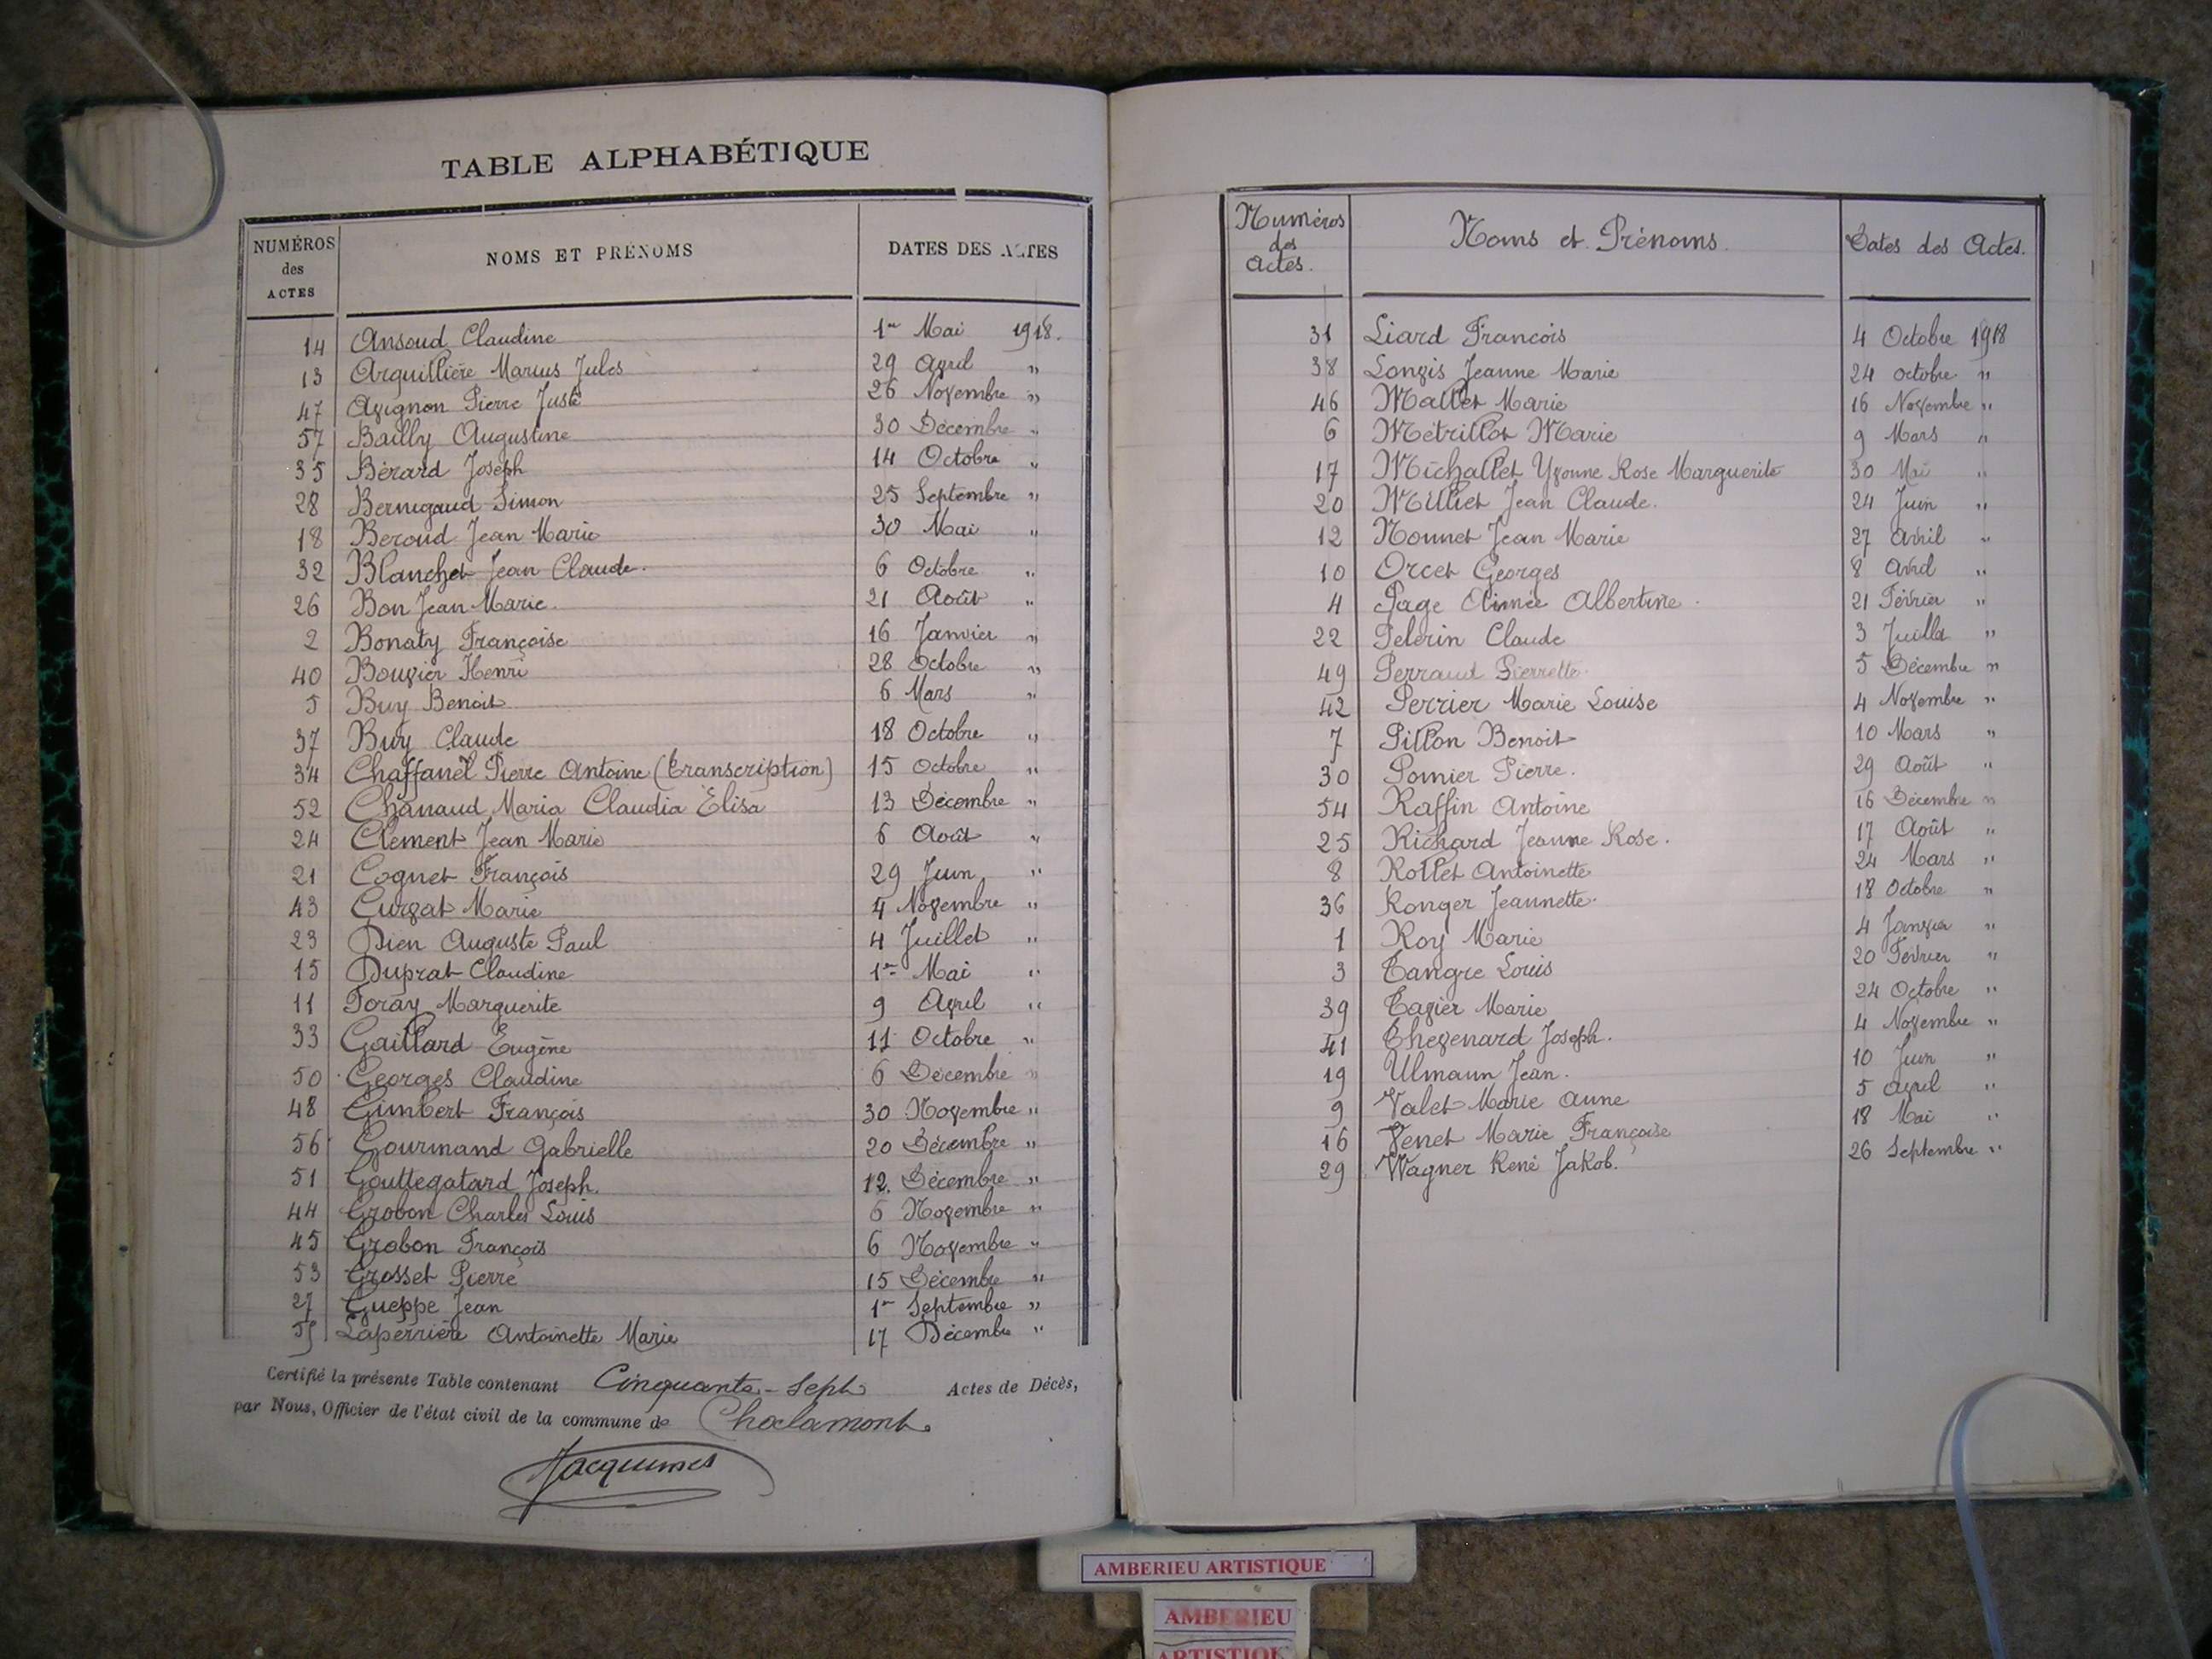 TABLE ALPHABÉTIQUE
NUMÉROS des ACTES NOMS ET PRÉNOMS DATES DES ACTES
14 Ansoud Claudine 1er Mai 1918.
13 Arquillière Marius Jules 29 Avril "
47 Avignon Pierre Juste 26 Novembre "
57 Bailly Augustine 30 Décembre "
35 Bérard Joseph 14 Octobre "
28 Bernigaud Simon 25 Septembre "
18 Beroud Jean Marie 30 Mai "
32 Blanchet Jean Claude. 6 Octobre "
26 Bon Jean Marie. 21 Août "
2 Bonaty Françoise 16 Janvier "
40 Bouvier Henri 28 Octobre "
5 Buy Benoit 6 Mars "
37 Buy Claude 18 Octobre "
34 Chaffanel Pierre Antoine (transcription) 15 Octobre "
52 Chanaud Maria Claudia Elisa 13 Décembre "
24 Clement Jean Marie 6 Août "
21 Cognet François 29 Juin "
43 Curvat Marie 4 Novembre "
23 Dien Auguste Paul 4 Juillet "
15 Duprat Claudine 1er Mai "
11 Foray Marguerite 9 Avril "
33 Gaillard Eugène 11 Octobre "
50 Georges Claudine 6 Décembre "
48 Gimbert François 30 Novembre "
56 Gourmand Gabrielle 20 Décembre "
51 Gouttegatard Joseph. 12. Décembre "
44 Grobon Charles Louis 6 Novembre "
45 Grobon François 6 Novembre "
53 Grosset Pierre 15 Décembre "
27 Gueppe Jean 1er Septembre "
55 Laperrière Antoinette Marie 17 Décembre "
Certifié la présente Table contenant Cinquante-Sept Actes de Décès,
par Nous, Officier de l'état civil de la commune de Chalamont.
Jacquemes
Numéros des Actes. Noms et Prénoms Dates des Actes.
31 Liard François 4 Octobre 1918
38 Longis Jeanne Marie 24 Octobre "
46 Mallet Marie 16 Novembre "
6 Métrillot Marie 9 Mars "
17 Michallet Yvonne Rose Marguerite 30 Mai "
20 Milliet Jean Claude. 24 Juin "
12 Nonnet Jean Marie 27 Avril "
10 Orcet Georges 8 Avril "
4 Page Aimée Albertine. 21 Février "
22 Pelerin Claude 3 Juillet "
49 Perraud Pierrette. 5 Décembre "
42 Perrier Marie Louise 4 Novembre "
7 Pillon Benoit 10 Mars "
30 Pomier Pierre. 29 Août "
54 Raffin Antoine 16 Décembre "
25 Richard Jeanne Rose. 17 Août "
8 Rollet Antoinette 24 Mars "
36 Ronger Jeannette. 18 Octobre "
1 Roy Marie 4 Janvier "
3 Tangre Louis 20 Février "
39 Tavier Marie 24 Octobre "
41 Thevenard Joseph. 4 Novembre "
19 Ulmann Jean. 10 Juin "
9 Valet Marie Anne 5 Avril "
16 Venet Marie Françoise 18 Mai "
29 Wagner René Jakob. 26 Septembre "
AMBERIEU ARTISTIQUE
AMBERIEU
ARTISTIQUE